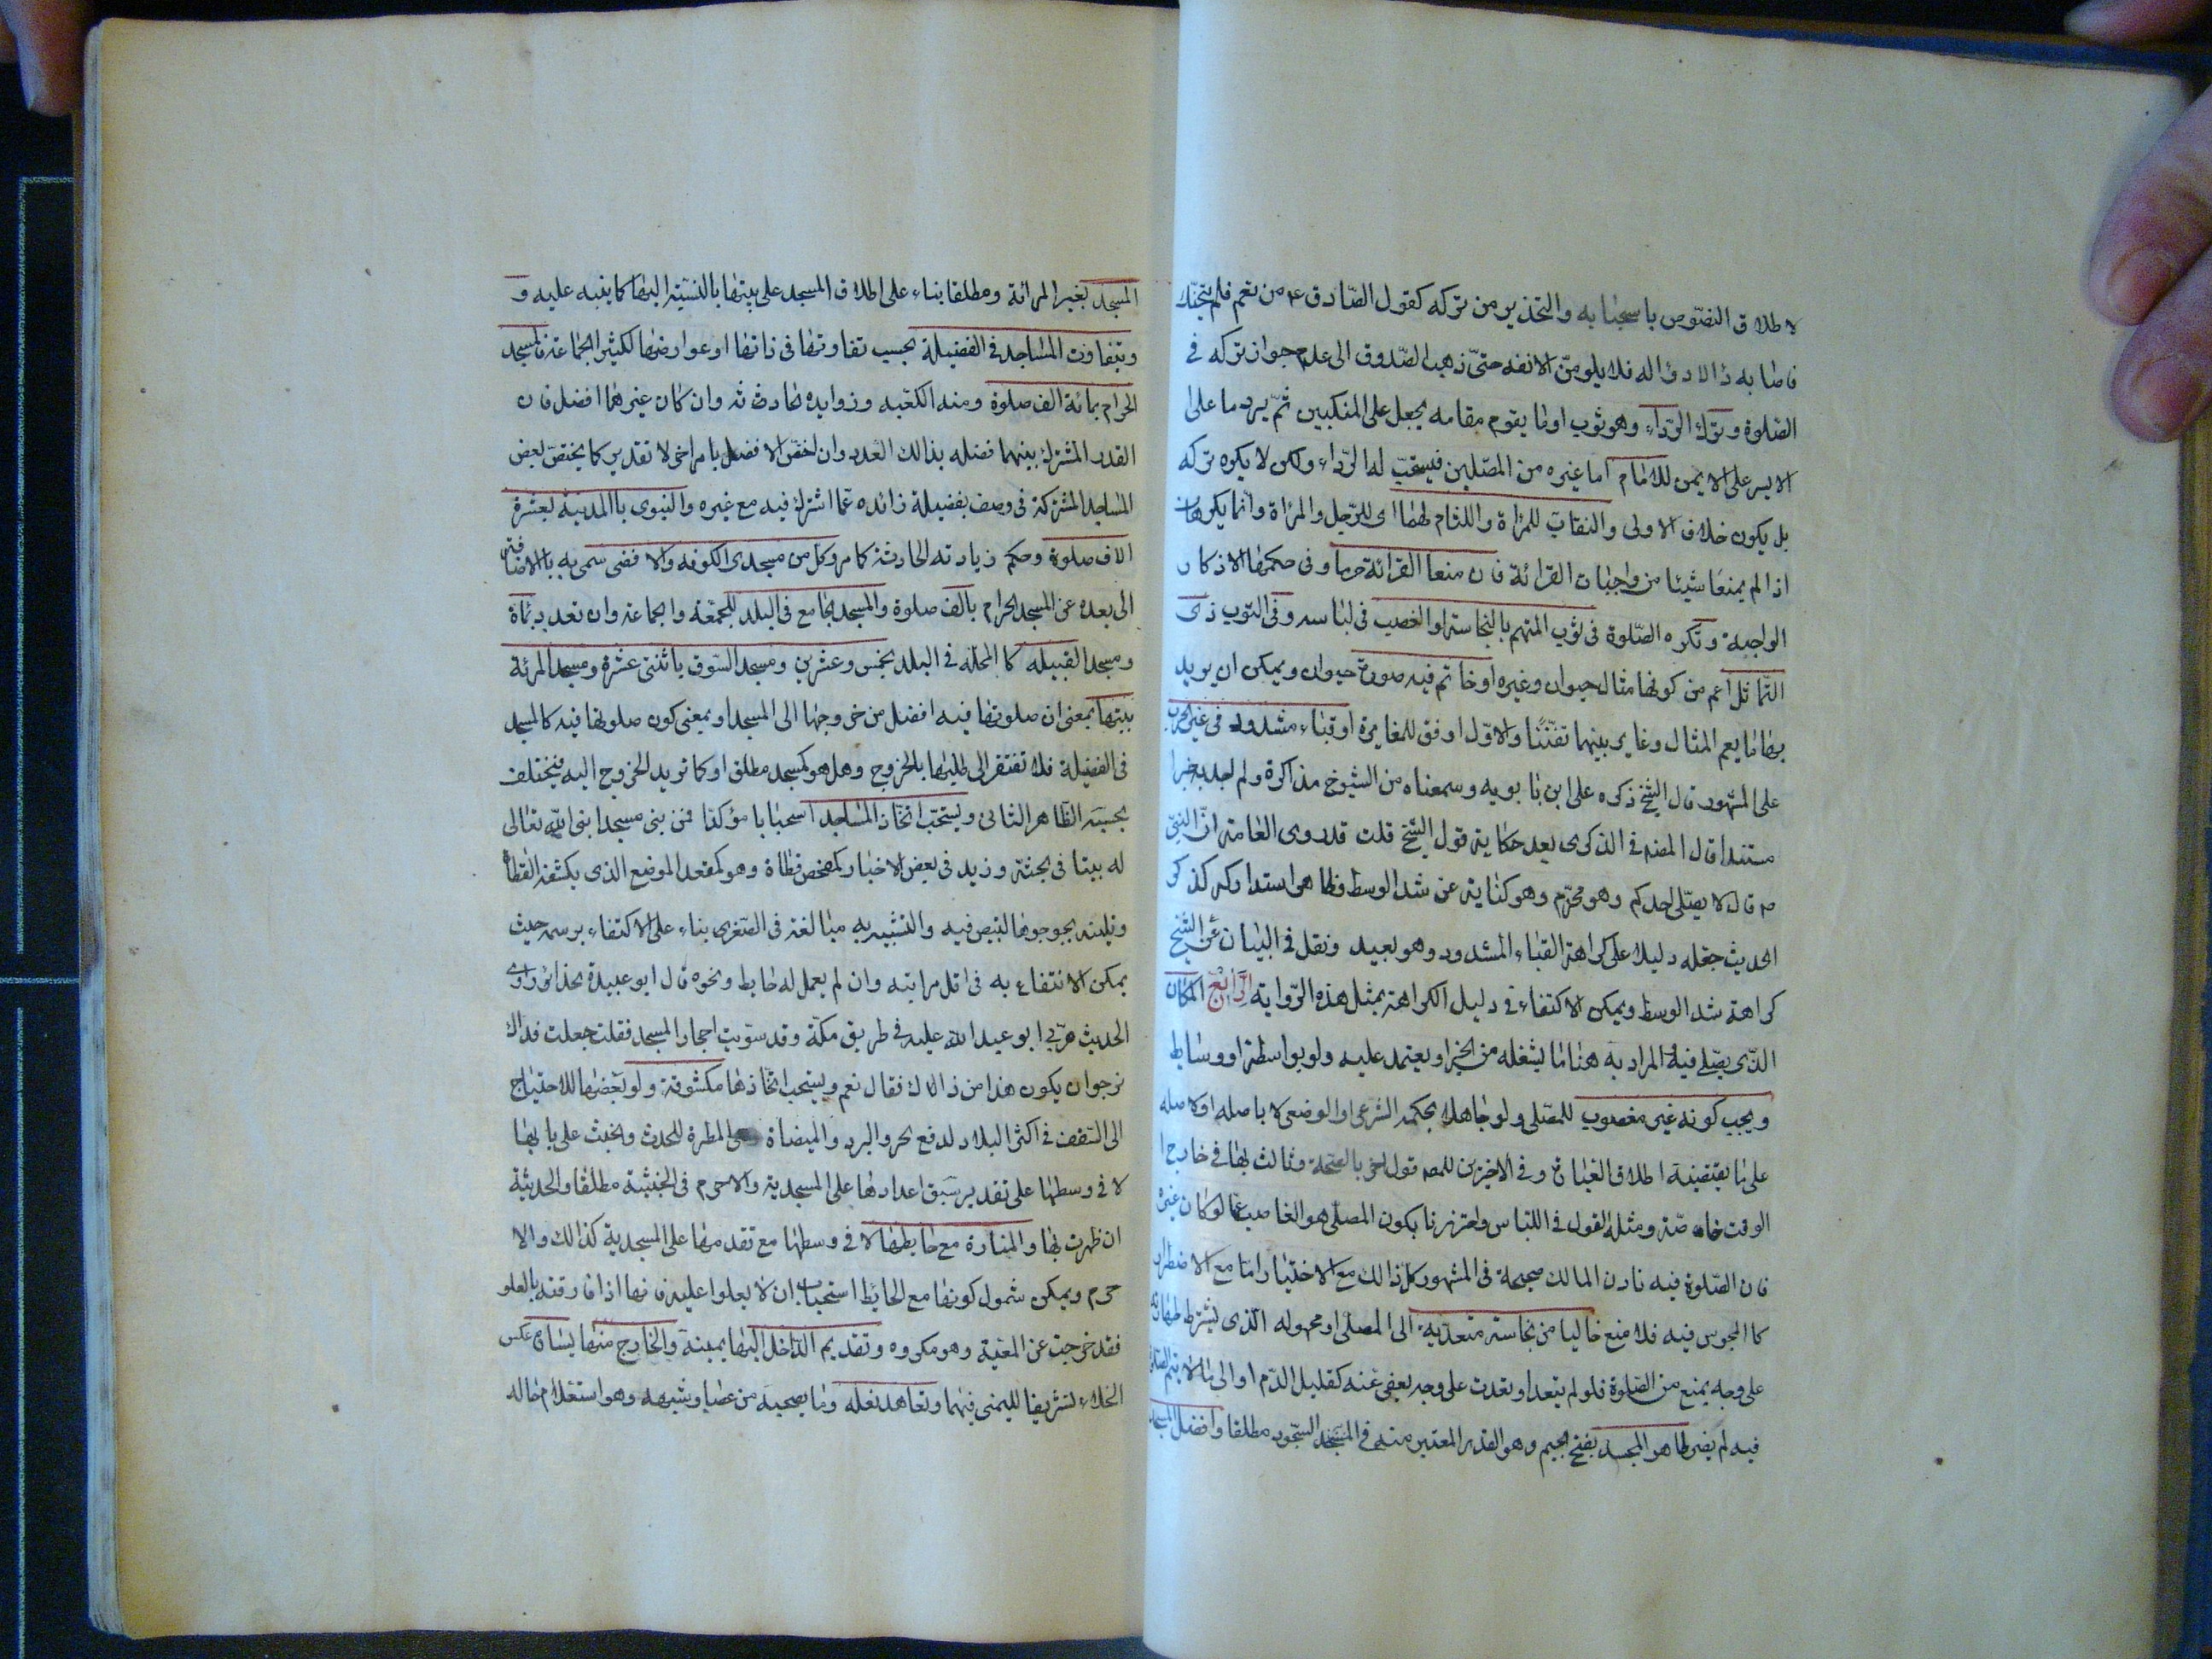 لاطلاق النصّوص باستحبابه والتحذير من تركه كقول الصّادق ع من تعمم فلم يتحنّك
فاصابه ذالا دوٰاله فلا يلومنّ الا نفسه حتىّ ذهب الصّدوق الى عدم جواز تركه فى
الصّلوة وترك الرّداء وهو ثوب اوما يقوم مقامه يجعل على المنكبين ثمّ يرد ما على ا
الايسر على الايمن للامٰام اما غيره من المصّلين فيستحّب له الرّداء ولكن لا يكره تركه
بل يكون خلاف الاولى والنقاب للمراة واللثام لهما اى للرّجل والمرٰاة وانّما يكرهان
اذا لم يمنعا شيئا من واجبات القرائة فان منعا القرائة حرما وفى حكمها الاذكار
الواجبة وتكره الصّلوة فى ثوب المتهم بالنجاسته او الغصب فى لباسه وفى الثوب ذى
التّماثل اعم من كونها مثال حيوان وغيره او خاتم فيه صورة حيوان ويمكن ان يريد
بهاما يعم المثال وغاير بينهما تفنّنًا والاوّل اوفق للمغايرة اوقبٰاء مشدود فى غير الحرب
على المشهور قال الشيخ ذكره على ابن بابويه وسمعناه من الشيوخ مذاكرة ولم اجد به خبرا
مستندا قال المصنه فى الذكرى بعد حكاية قول الشيخ قلت قد روى العامة انّ النبىّ
ص قال لا يصلّى احدكم وهو محزّم وهو كناية عن شد الوسط وظاهر استدراكه لذكر
الحديث جعله دليلا على كراهة القباء المشدود وهو بعيد ونقل فى البيٰان عن الشيخ
كراهة شد الوسط ويمكن الاكتفاء فى دليل الكراهة بمثل هذه الرّواية الرّابع المكان
الذّى يصّلى فيه المراد به هنا ما يشغله من الحيز او يعتمد عليه ولو بواسطة او وسايط
ويجب كونه غير مغصوب للمصّلى ولو جاهلا بحكمه الشرعى او الوضعى لا باصله اولاصله
على ما يقتضيه اطلاق العبارة وفى الاخيرين للمصه قول اخر بالصّحة وثالث بها فى خارج ا
الوقت خاصّة ومثله القول فى اللباس واحترزنا بكون المصلّى هو الغاصب عما لو كان غيره
فان الصّلوة فيه باذن المالك صحيحة فى المشهور كل ذالك مع الاختيار امّا مع الاضطرار
كا المحبوس فيه فلا منع خاليا من نجاسته متعديّة الى المصلّى او محموله الذى يشترط طهارته
على وجه يمنع من الصّلوة فلو لم يتعد او تعدت على وجه يعفى عنه كقليل الدّم او الى ما لا يتم الصلوة
فيه لم يضر طاهر المجسد بفتح الجيم وهو القدر المعتبر منه فى السّجود مطلقا وافضل المسجد
المسجد بغير المرائة ومطلقا بناء على اطلاق المسجد على بيتها بالنسبّته اليها كما ينبه عليه و
ويتفاوت المساجد فى الفضيلة بحسب تفاوتها فى ذاتها او عوارضها لكثير الجماعة فالمسجد
الحرام بمائة الف صلوة ومنه الكعبه وزوايده الحادثة وان كان غيرهما افضل فان
القدر المشترك بينهما فضله بذالك العدد وان اختص الافضل بامر اخر لا تقدير كما يختص بعض
المساجد المشتركة فى وصف بفضيلة زائده عما اشترك فيه مع غيره والنبوى بالمدينة بعشرة
الاف صلوة وحكم زيادته الحادثة كامر وكل من مسجدى الكوفه والاقصى سمى به بالاضافة
الى بعده عن المسجد الحرام بالف صلوة والمسجد الجامع فى البلد للجمعة والجماعة وان تعدد بمٰاة
ومسجد القبيله كا المحلّه فى البلد بخمس وعشرين ومسجد السّوق باثنتى عشرة ومسجد المرئة
بيتها بمعنى ان صلوتها فيه افضل من خروجها الى المسجد او بمعنى كون صلوتها فيه كالمسجد
فى الفضيلة فلا تفتقر الى طلبها بالخروج وهل هو كمسجد مطلق او كما تريد الخروج اليه فيختلف
بحسبه الظاهر الثانى ويستحّب اتخاذ المساجد استحبابا مؤكدا فمن بنى مسجدا بنى الله تعالى
له بيتا فى الجنة وزيد فى بعض الاخبار كمفحص قطاة وهو كمقعد الموضع الذى يكشفه القطا
وتلينه بجؤجؤها لتبيض فيه والتشبيه به مبالغة فى الصّغر بناء على الاكتفاء برسمه حيث
يمكن الانتفاع به فى اقل مراتبه وان لم يعمل له حايط ونحوه قال ابو عبيدة الحذاء راوى
الحديث مرّ بى ابو عبد الله عليه فى طريق مكّة وقد سوّيت احجار المسجد فقلت جعلت فداك
نرجوا ن يكون هذا من ذالك فقال نعم ويستحب اتخّاذها مكشوفة ولو بعضها للاحتياج
الى السّقف فى اكثر البلاد لدفع الحر والبرد والميضاة وهى المطهرة للحدث والخبث على بابها
لا فى وسطها على تقدير سبق اعدادها على المسجدية والا حرم فى الخبثية مطلقا والحدثية
ان ظهرت بها والمنارة مع حايطها لا فى وسطها مع تقدمها على المسجدية كذالك والا
حرم ويمكن شمول كونها مع الحايط استحباب ان لا يعلوا عليه فانها اذا فارقته بالعلو
فقد خرجت عن المعّية وهو مكروه وتقديم الدّاخل اليها يمينه والخارج منها يساره عكس
الخلاء تشريفا لليمنى فيهما وتعاهد نعله وما يصحبه من عصا وشبهه وهو استعلام حاله